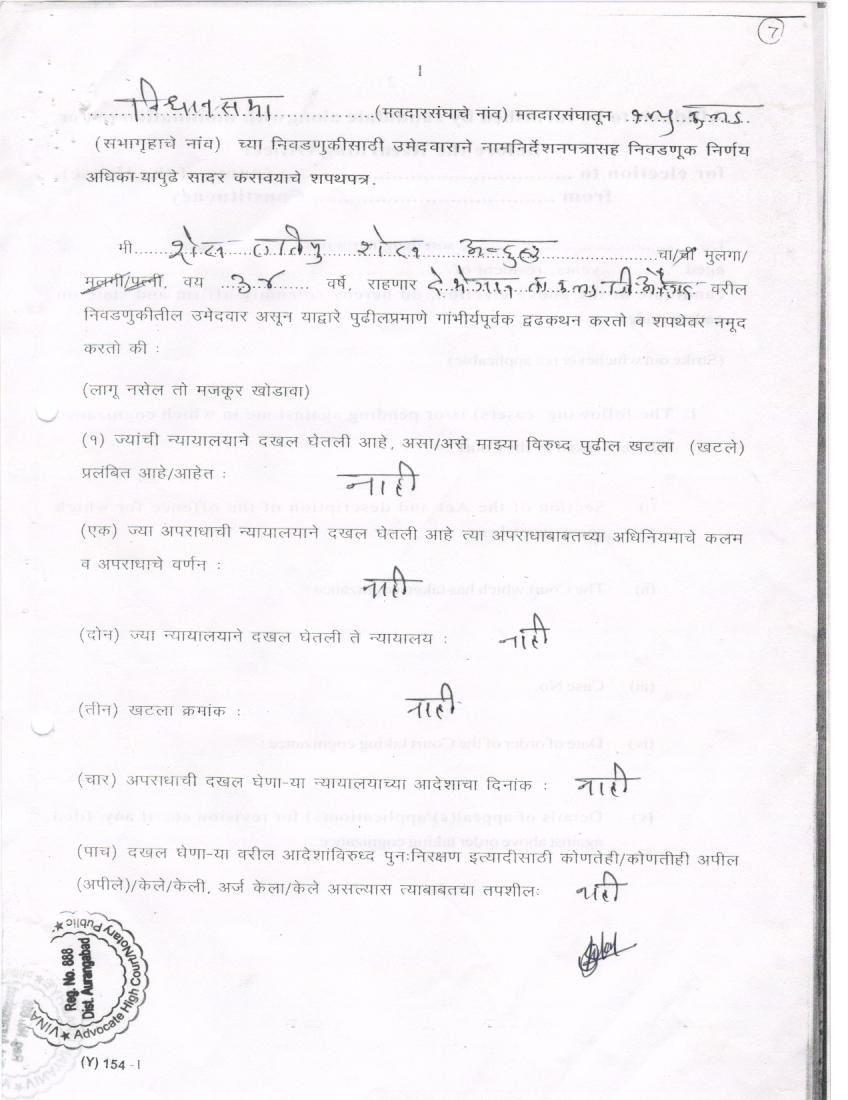 7
1
विधानसभा (मतदारसंघाचे नांव) मतदारसंघातून
(सभागृहाचे नांव) च्या निवडणुकीसाठी उमेदवाराने नामनिर्देशनपत्रासह निवडणूक निर्णय
अधिका-यापुढे सादर करावयाचे शपथपत्र.
मी शेख लतिफ शेख चा/ची मुलगा/
मुलगी/पत्नी, वय ३४ वर्षे, राहणार वरील
निवडणुकीतील उमेदवार असून याद्वारे पुढीलप्रमाणे गांभीर्यपूर्वक द्वढकथन करतो व शपथेवर नमूद
करतो की :
(लागू नसेल तो मजकूर खोडावा)
(१) ज्यांची न्यायालयाने दखल घेतली आहे, असा/असे माझ्या विरुध्द पुढील खटला (खटले)
प्रलंबित आहे/आहेत : नाही
(एक) ज्या अपराधाची न्यायालयाने दखल घेतली आहे त्या अपराधाबाबतच्या अधिनियमाचे कलम
व अपराधाचे वर्णन :
नाही
(दोन) ज्या न्यायालयाने दखल घेतली ते न्यायालय : नाही
(तीन) खटला क्रमांक : नाही
(चार) अपराधाची दखल घेणा-या न्यायालयाच्या आदेशाचा दिनांक : नाही
(पाच) दखल घेणा-या वरील आदेशांविरुध्द पुनःनिरक्षण इत्यादीसाठी कोणतेही/कोणतीही अपील
(अपीले)/केले/केली, अर्ज केला/केले असल्यास त्याबाबतचा तपशीलः नाही
Reg. No. 888
Dist. Aurangabad
Advocate High Court/Notary Public
(Y) 154 - I